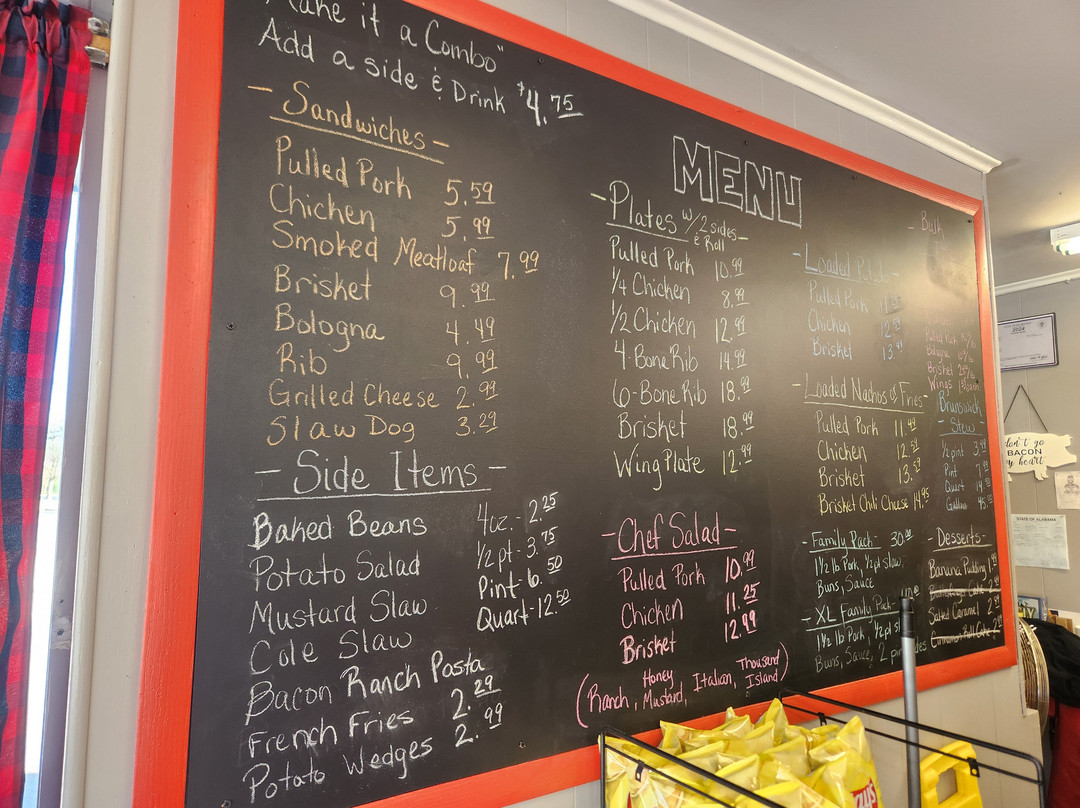 Make it a Combo"
Add a side & Drink $4.75
- Sandwiches -
Pulled Pork 5.59
Chicken 5.99
Smoked Meatloaf 7.99
Brisket 9.99
Bologna 4.49
Rib 9.99
Grilled Cheese 2.99
Slaw Dog 3.29
- Side Items -
Baked Beans
Potato Salad
Mustard Slaw
Cole Slaw
Bacon Ranch Pasta
French Fries 2.29
Potato Wedges 2.99
4oz. - 2.25
1/2 pt - 3.75
Pint - 6.50
Quart - 12.50
MENU
- Plates w/2 sides -
& Roll
Pulled Pork 10.99
1/4 Chicken 8.99
1/2 Chicken 12.99
4-Bone Rib 14.99
6-Bone Rib 18.99
Brisket 18.99
Wing Plate 12.99
- Chef Salad -
Pulled Pork 10.99
Chicken 11.25
Brisket 12.99
(Ranch, Honey Mustard, Italian, Thousand Island)
- Loaded Potato -
Pulled Pork
Chicken
Brisket
- Loaded Nachos or Fries -
Pulled Pork 11.49
Chicken 12.59
Brisket 13.59
Brisket Chili Cheese 14.95
- Family Pack - 30.00
1 1/2 lb Pork, 1/2 pt slaw,
Buns, Sauce
- XL Family Pack -
1 1/2 lb Pork, 1/2 pt
Buns, Sauce, 2
- Bulk
Pulled Pork
Bologna
Brisket
Wings
Brunswick
- Stew -
1/2 pint
Pint
Quart
Gallon
- Desserts -
Banana Pudding
Salted Caramel
don't go
BACON
my heart
STATE OF ALABAMA
2024